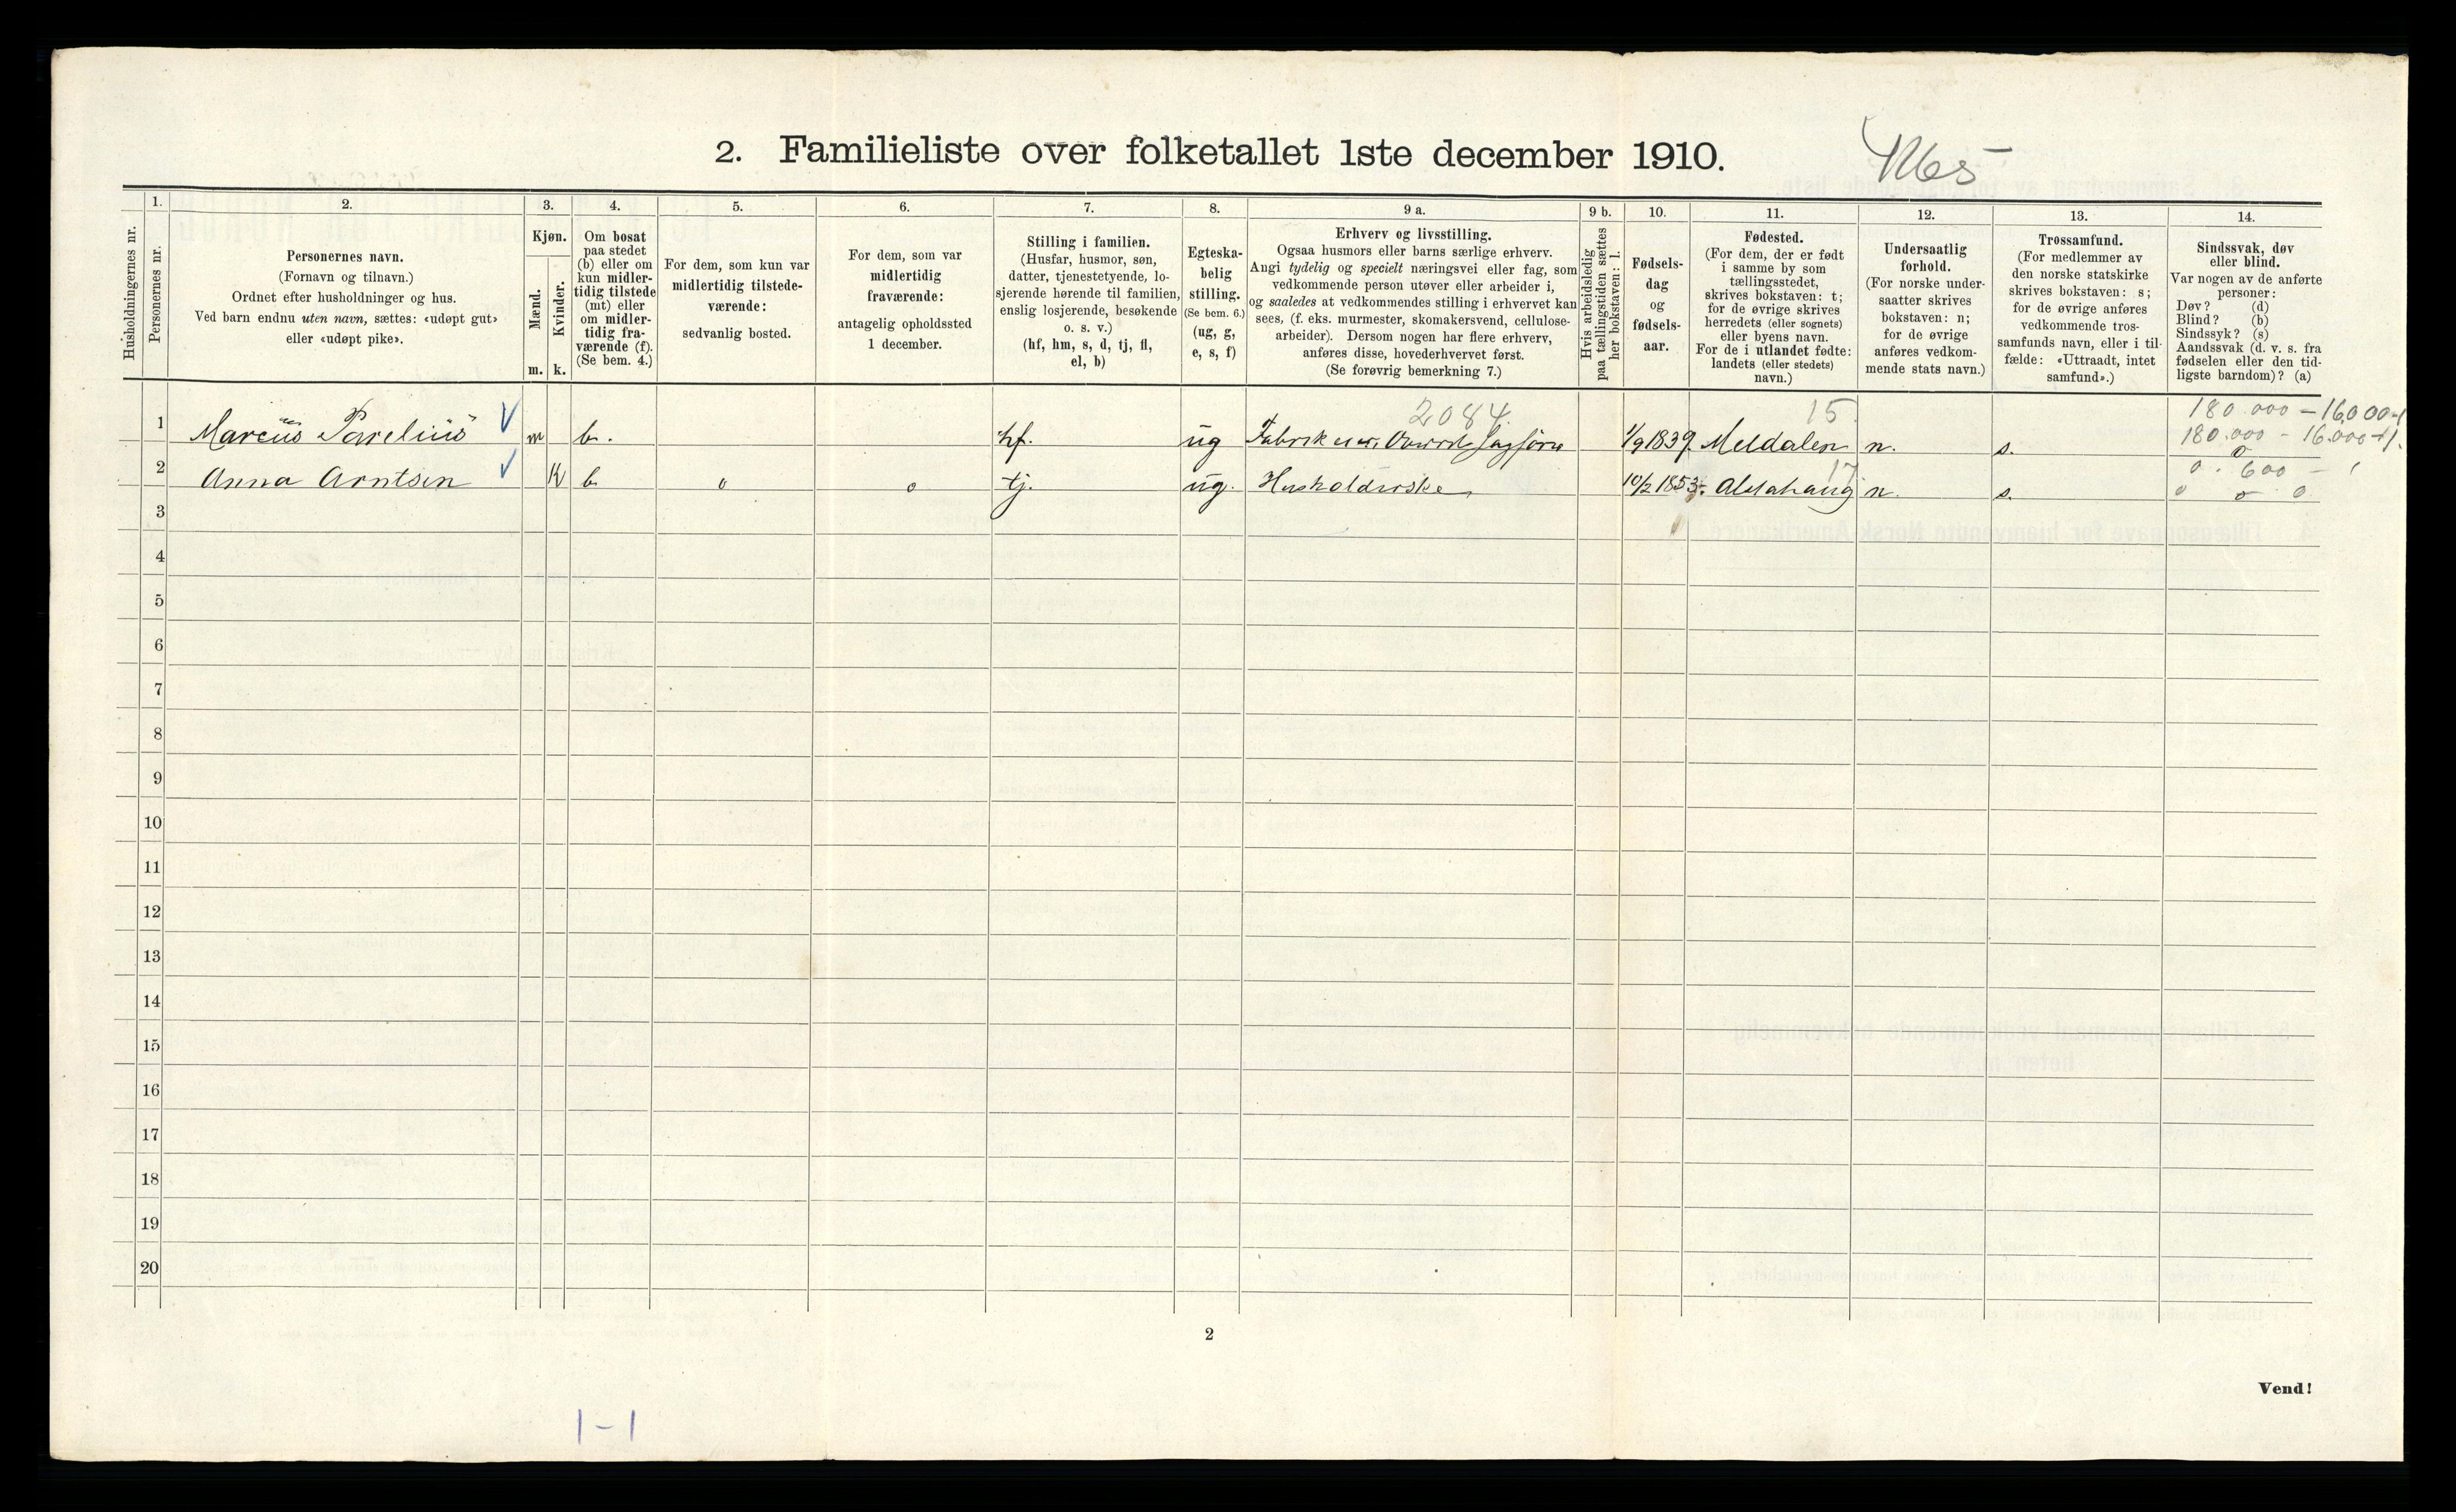 2. Familieliste over folketallet 1ste december 1910.
Husholdningernes nr.
1.
Personernes nr.
2.
Personernes navn.
(Fornavn og tilnavn.)
Ordnet efter husholdninger og hus.
Ved barn endnu uten navn, sættes: «udøpt gut»
eller «udøpt pike».
3.
Kjøn.
Mænd.
Kvinder.
m. k.
4.
Om bosat
paa stedet
(b) eller om
kun midler-
tidig tilstede
(mt) eller
om midler-
tidig fra-
værende (f).
(Se bem. 4.)
5.
For dem, som kun var
midlertidig tilstede-
værende:
sedvanlig bosted.
6.
For dem, som var
midlertidig
fraværende:
antagelig opholdssted
1 december.
7.
Stilling i familien.
(Husfar, husmor, søn,
datter, tjenestetyende, lo-
sjerende hørende til familien,
enslig losjerende, besøkende
o. s. v.)
(hf, hm, s, d, tj, fl,
el, b)
8.
Egteska-
belig
stilling.
(Se bem. 6.)
(ug, g,
e, s, f)
9 a.
Erhverv og livsstilling.
Ogsaa husmors eller barns særlige erhverv.
Angi tydelig og specielt næringsvei eller fag, som
vedkommende person utøver eller arbeider i,
og saaledes at vedkommendes stilling i erhvervet kan
sees, (f. eks. murmester, skomakersvend, cellulose-
arbeider). Dersom nogen har flere erhverv,
anføres disse, hovederhvervet først.
(Se forøvrig bemerkning 7.)
9 b.
Hvis arbeidsledig
paa tællingstiden sættes
her bokstaven: l.
10.
Fødsels-
dag
og
fødsels-
aar.
11.
Fødested.
(For dem, der er født
i samme by som
tællingsstedet,
skrives bokstaven: t;
for de øvrige skrives
herredets (eller sognets)
eller byens navn.
For de i utlandet fødte:
landets (eller stedets)
navn.)
12.
Undersaatlig
forhold.
(For norske under-
saatter skrives
bokstaven: n;
for de øvrige
anføres vedkom-
mende stats navn.)
13.
Trossamfund.
(For medlemmer av
den norske statskirke
skrives bokstaven: s;
for de øvrige anføres
vedkommende tros-
samfunds navn, eller i til-
fælde: «Uttraadt, intet
samfund».)
14.
Sindssvak, døv
eller blind.
Var nogen av de anførte
personer:
Døv? (d)
Blind? (b)
Sindssyk? (s)
Aandssvak (d. v. s. fra
fødselen eller den tid-
ligste barndom)? (a)
2084. 15 180.000 - 16,000 -
180.000 - 16.000
1 Marcus Parelius m b. hf. ug 1/9 1839. Meldalen n. s. o
17 0. 600 -
2 Anna Arntsen K b. o o tj. ug. Husholderske 10/2 1853. Alstahaug n. s. o o o
3
4
5
6
7
8
9
10
11
12
13
14
15
16
17
18
19
20
2
Vend!
1-1